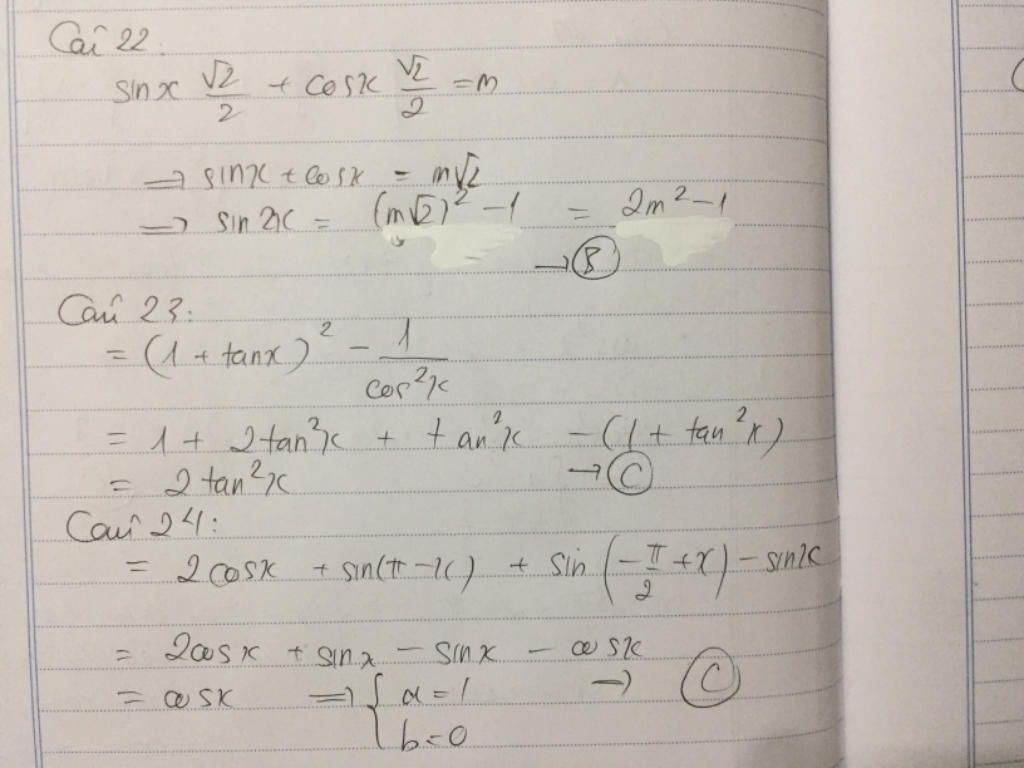 Câu 22:
sinx √2/2 + cosx √2/2 = m
=> sinx + cosx = m√2
=> sin2x = (m√2)² - 1 = 2m² - 1
→ B
Câu 23:
= (1 + tanx)² - 1/cos²x
= 1 + 2tan²x + tan²x - (1 + tan²x)
= 2tan²x → C
Câu 24:
= 2cosx + sin(π - x) + sin(-π/2 + x) - sinx
= 2cosx + sinx - sinx - cosx
= cosx => { a = 1 → C
b = 0